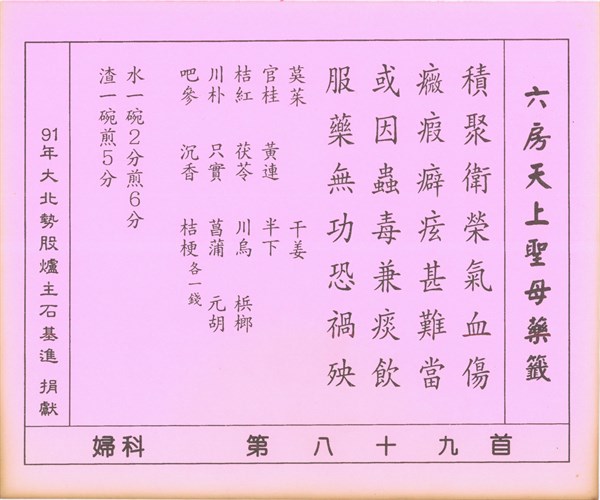 六房天上聖母藥籤
積聚衛榮氣血傷
癥瘕癖痃甚難當
或因蟲毒兼痰飲
服藥無功恐禍殃
茣茱 干姜
官桂 黃連 半下
桔紅 茯苓 川烏 梹榔
川朴 只實 菖蒲 元胡
吧參 沉香 桔梗各一錢
水一碗2分煎6分
渣一碗煎5分
91年大北勢股爐主石基進 捐獻
婦科 第八十九首